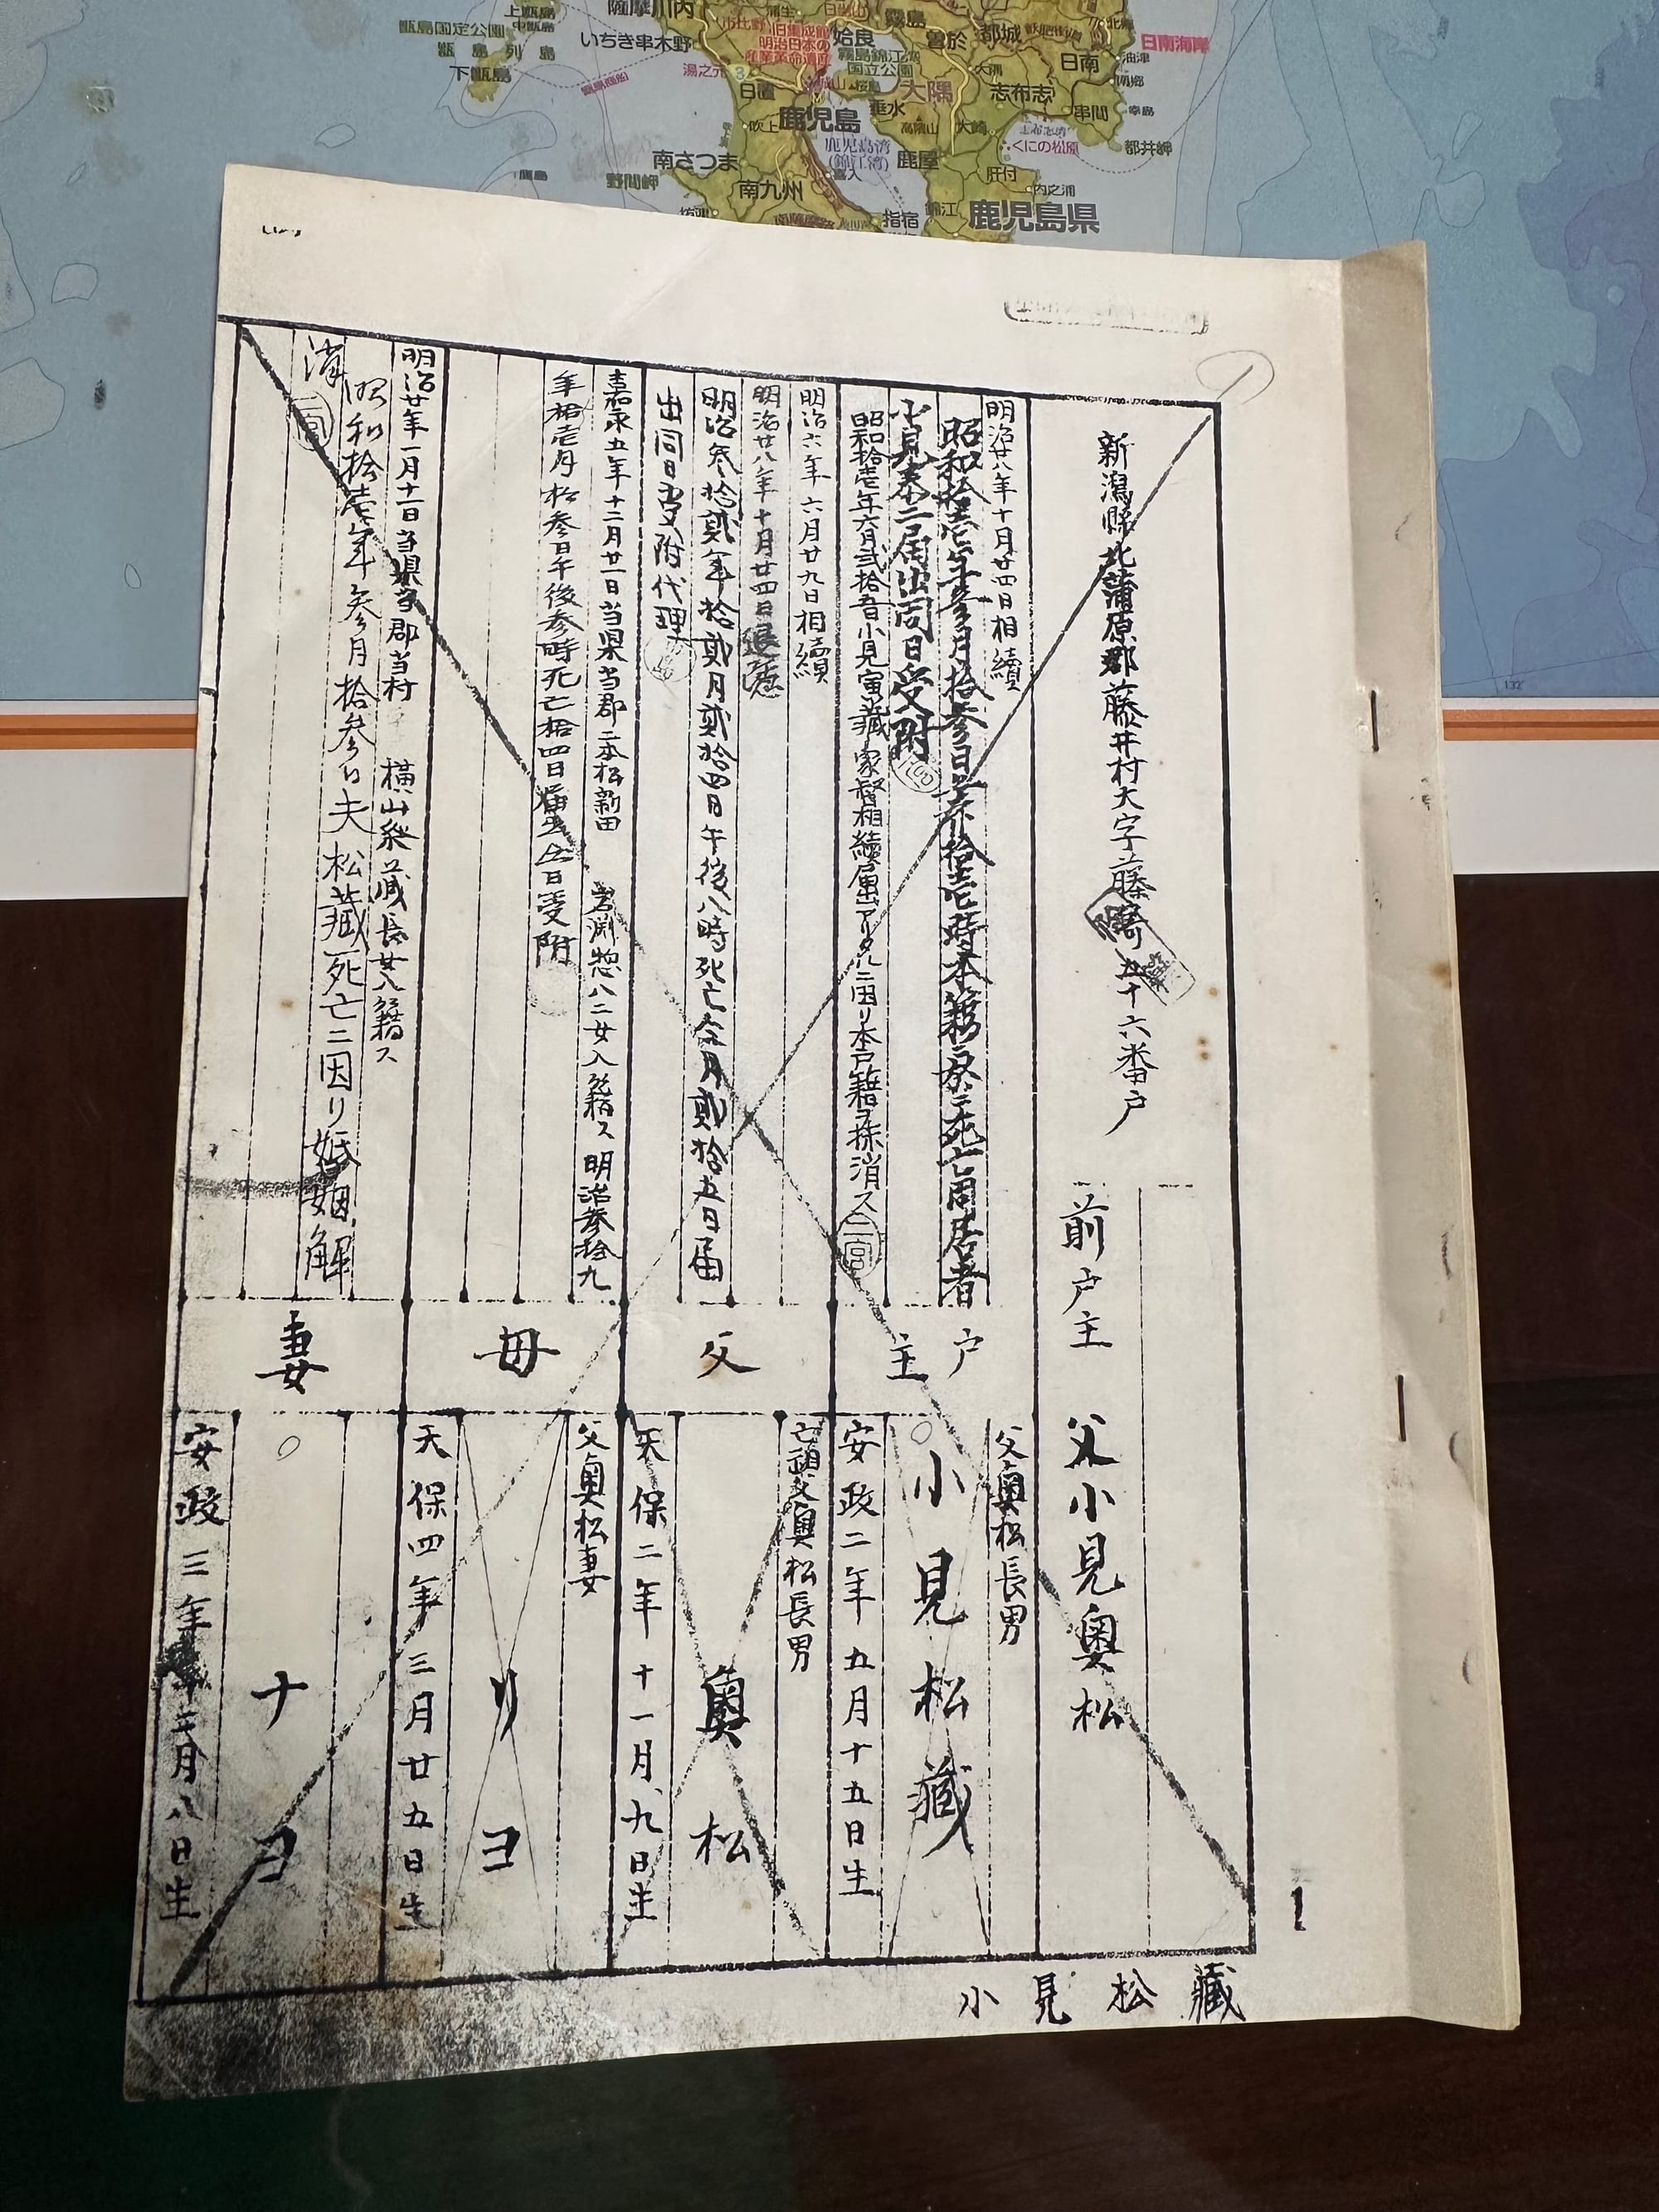 上甑島
中甑島
甑島国定公園
甑島列島
下甑島
薩摩川内
いちき串木野
市比野
湯之元
旧集成館
明治日本の
産業革命遺産
姶良
霧島
霧島錦江湾
国立公園
曽於
都城
日南
日南海岸
油津
日置
鹿児島
吹上
桜島
垂水
大隅
高隈山
志布志
大崎
串間
幸島
都井岬
くにの松原
南さつま
野間岬
鷹島
南九州
鹿児島湾
(錦江湾)
喜入
鹿屋
肝付
内之浦
錦江
指宿
鹿児島県
132°
新潟縣北蒲原郡藤井村大字藤寄五十六番戸
前戸主 父小見奧松
明治廿八年十月廿四日相續
昭和拾壱年参月拾参日午前拾壱時本籍ニ於テ死亡同居者
小見泰二届出同日受附
昭和拾壱年六月弐拾五日小見寅藏家督相續届出アリタルニ因リ本戸籍ヲ抹消ス
二宮
戸主
父奧松長男
小見松藏
安政二年五月十五日生
明治六年六月廿九日相續
明治廿八年十月廿四日退隠
明治参拾貮年拾貮月貮拾四日午後八時死亡仝月貮拾五日届
出同日受附代理
父
亡祖父奧松長男
奧松
天保二年十一月九日生
嘉永五年十二月廿一日当県当郡二本松新田 岩渕惣八二女入籍ス 明治参拾九
年拾壱月拾参日午後参時死亡拾四日届出仝日受附
母
父奧松妻
リヨ
天保四年三月廿五日生
明治廿年一月十一日当県当郡当村 横山粂藏長女入籍ス
昭和拾壱年参月拾参日夫松藏死亡ニ因リ婚姻解
消
二宮
妻
ナヨ
安政三年
月八日生
1
小見松藏